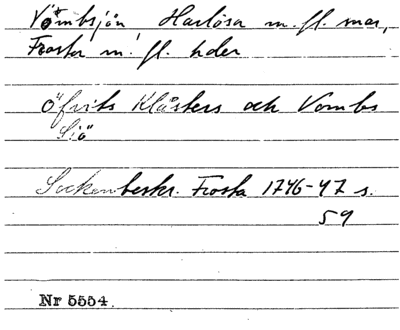 Vombsjön Harlösa m. fl. snar,
Frosta m. fl. hder
Öfvits Klåsters och Vombs
Siö
Sockenbeskr. Frosta 1746-47 s.
59
Nr 5554.